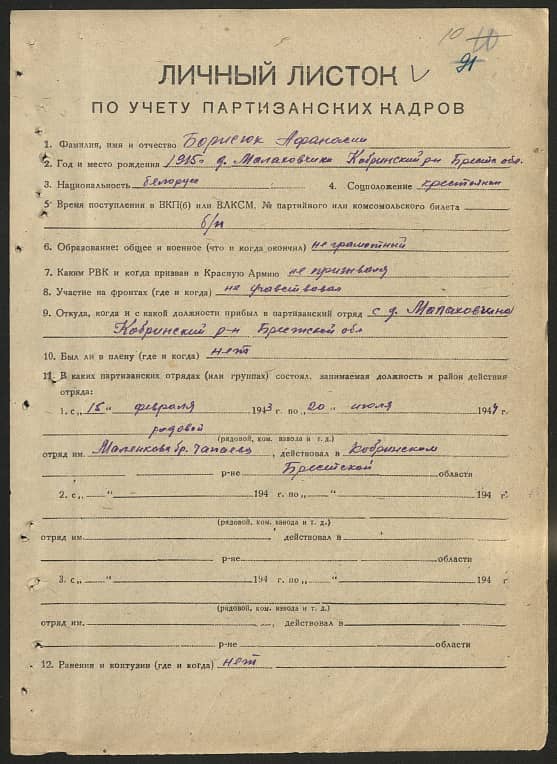 10 10
91
ЛИЧНЫЙ ЛИСТОК
ПО УЧЕТУ ПАРТИЗАНСКИХ КАДРОВ
1. Фамилия, имя и отчество Борисюк Афанасии
2. Год и место рождения 1915г. д. Малаховчики Кобринский р-н Брестс. обл.
3. Национальность белорус 4. Соцположение крестьянин
5. Время поступления в ВКП(б) или ВЛКСМ, № партийного или комсомольского билета
б/п
6. Образование: общее и военное (что и когда окончил) не грамотный
7. Каким РВК и когда призван в Красную Армию не призвался
8. Участие на фронтах (где и когда) не участвовал
9. Откуда, когда и с какой должности прибыл в партизанский отряд с д. Малаховчина
Кобринский р-н Брестской обл
10. Был ли в плену (где и когда) нет
11. В каких партизанских отрядах (или группах) состоял, занимаемая должность и район действия
отряда:
1. с „15" февраля 1943 г. по „20" июля 1944 г.
рядовой
(рядовой, ком. взвода и т. д.)
отряд им. Маленкова бр. Чапаева, действовал в Кобринском
р-не Брестской области
2. с „ " 194 г. по „ " 194 г.
(рядовой, ком. взвода и т. д.)
отряд им. , действовал в
р-не области
3. с „ " 194 г. по „ " 194 г.
(рядовой, ком. взвода и т. д.)
отряд им. , действовал в
р-не области
12. Ранения и контузии (где и когда) нет